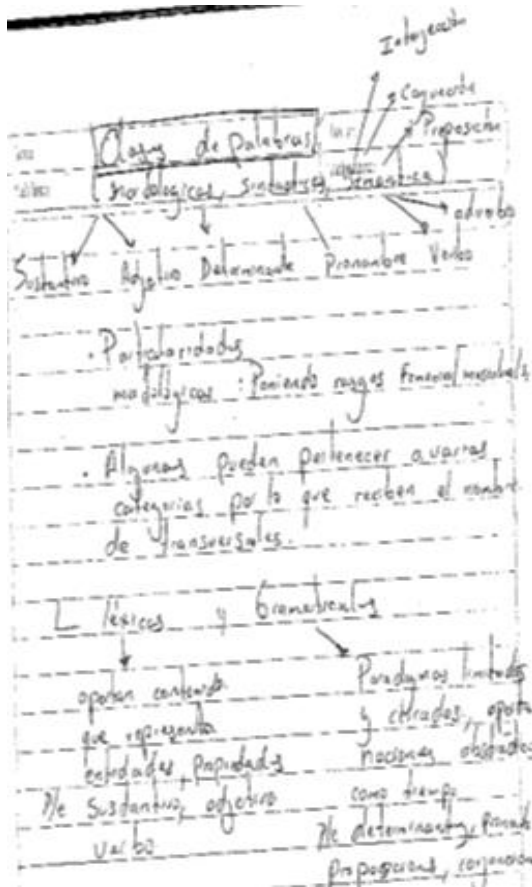 Interjección
Conjunción
Preposición
Clases de palabras
morfologicas, sintactica, semantica
adverbo
Sustantivo Adjetivo Determinante Pronombre Verbo
• Particularidades
morfológicas : Poniendo rasgos
• Algunas pueden pertenecer a varias
categorias por lo que reciben el nombre
de transversales.
L léxicas y Gramaticales
aportan contenido
que representa
entidades, propiedades
P/e Sustantivo, adjetivo
verbo
Paradigmas limitados
y cerrados, aporta
nociones abstractas
como tiempo
P/e determinante,